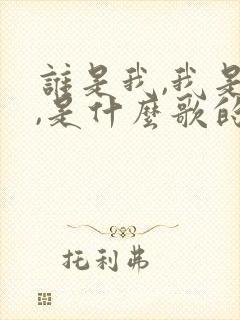 誰是我,我是
,是什麼歌的
托利弗